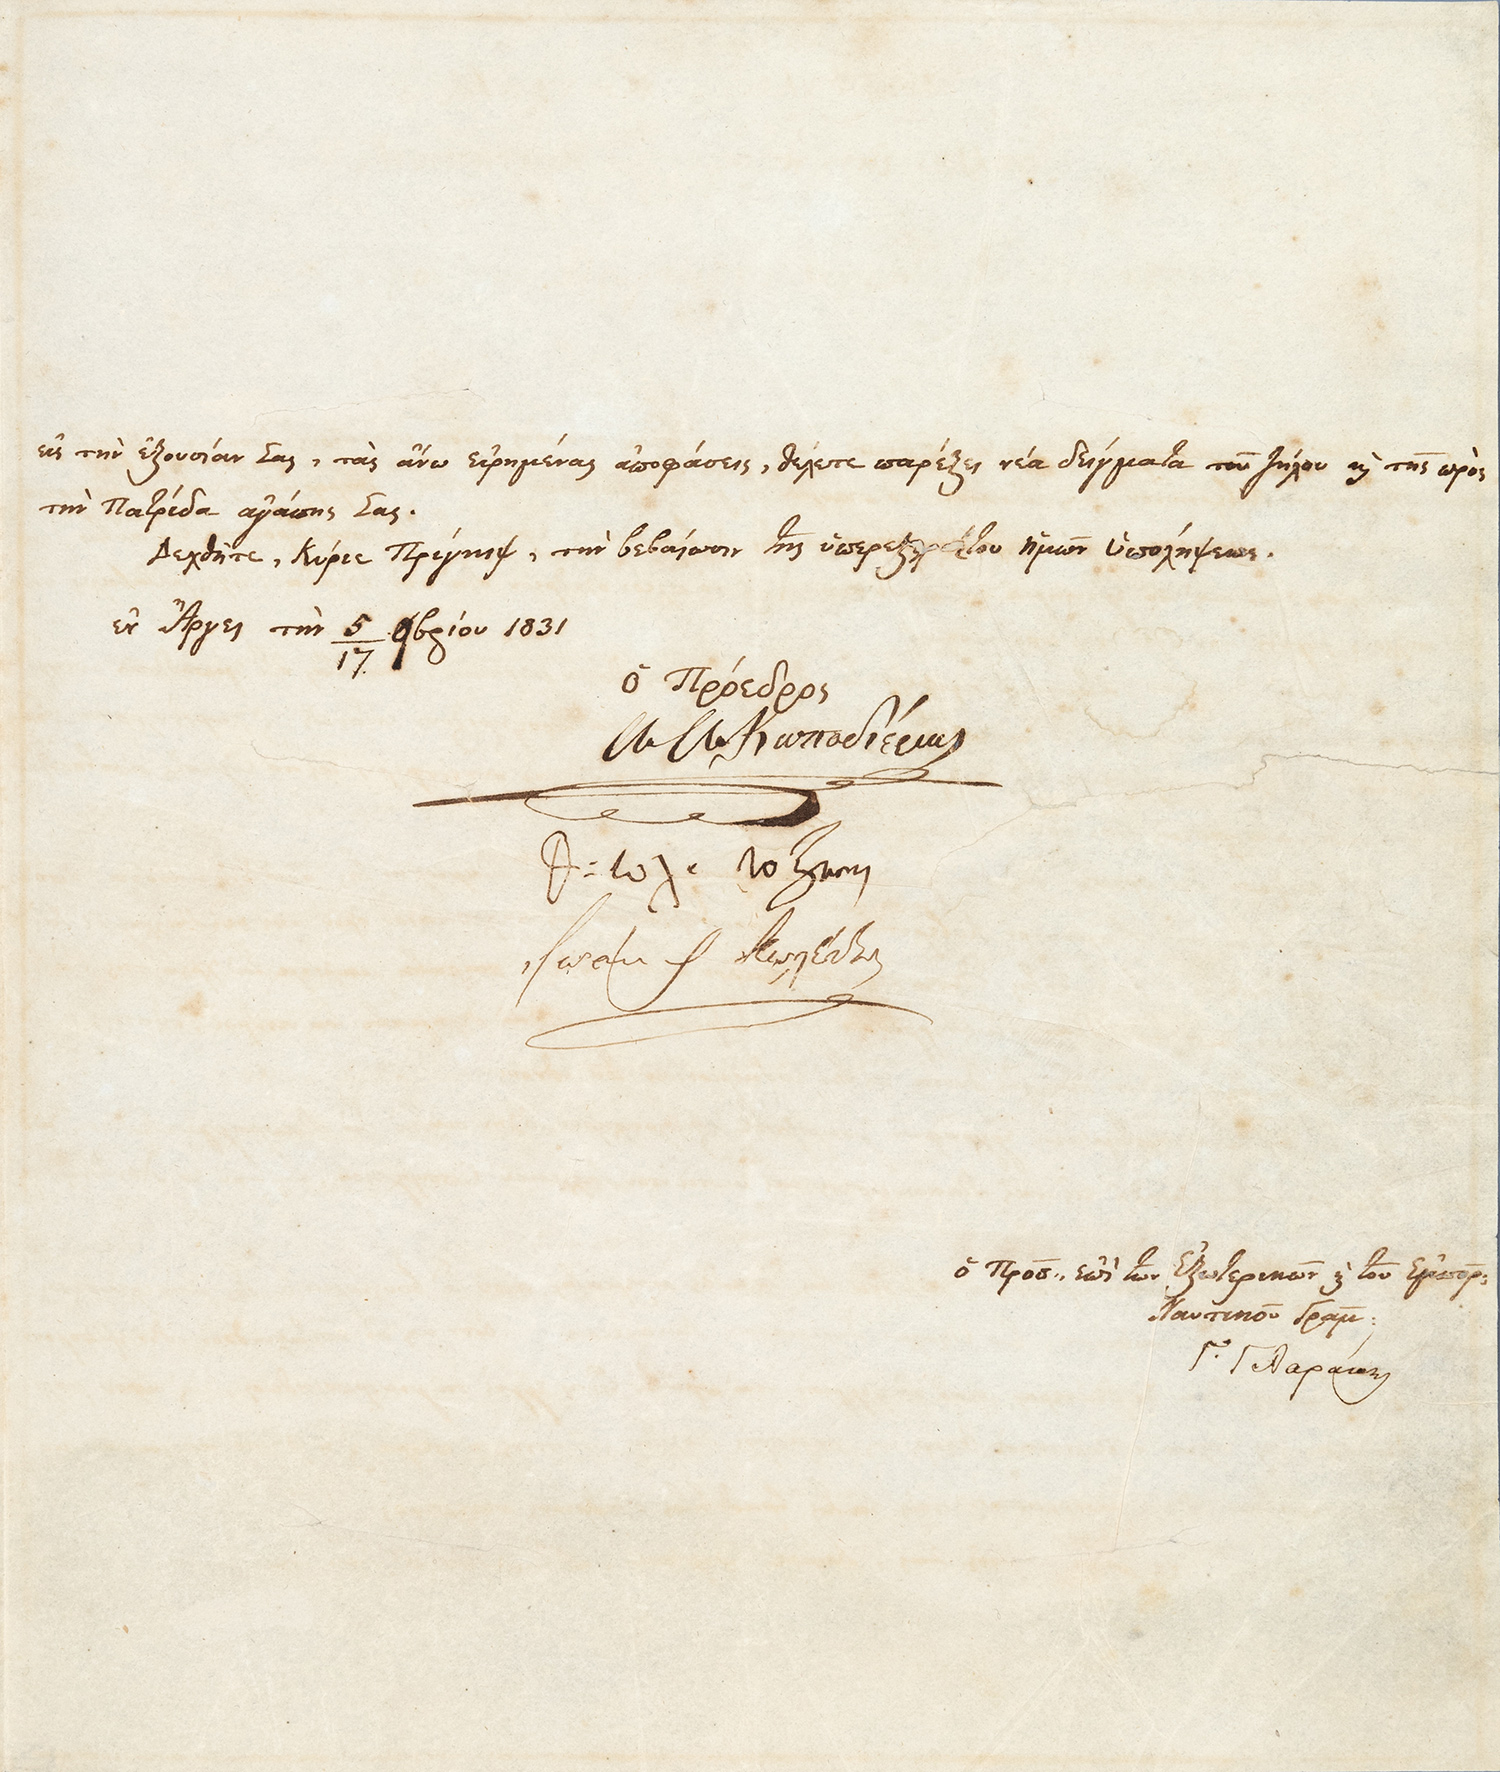 εἰς τὴν ἐξουσίαν Σας, τὰς ἄνω εἰρημένας ἀποφάσεις, θέλετε παρέξει νέα δείγματα τοῦ ζήλου κỳ τῆς πρὸς
τὴν Πατρίδα ἀγάπης Σας.
Δεχθῆτε, Κύριε Πρίγκιψ, τὴν βεβαίωσιν τῆς ὑπερεξαιρέτου ἡμῶν ὑπολήψεως.
ἐν Ἄργει τὴν 5/17 Οβρίου 1831
ὁ Πρόεδρος
Α. Α. Καποδίστριας
Θ: Κολοκοτρώνης
Ἰωάν Κωλέττης
ὁ Προσ., ἐπὶ τῶν Ἐξωτερικῶν κ τοῦ Ἐμπορ:
Ναυτικοῦ Γραμ:
Γ. Γλαράκης